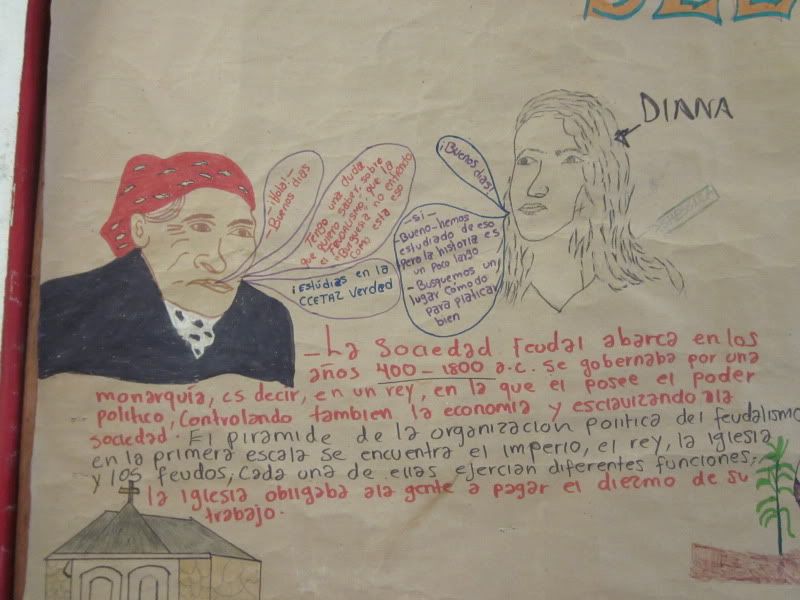 DIANA
-¡Hola!-
Buenos dias
Tengo una duda
que quiero saber, sobre
que la
Burguesia no entiendo
como esta eso
¡Estúdias en la
CCETAZ Verdad
¡Buenos
dias!
-Si-
-Bueno-hemos
estudiado de eso
pero la historia es
un poco larga
-Busquemos un
lugar comodo
para platicar
bien
-La Sociedad Feudal abarca en los
años 400-1800 a.c. se gobernaba por una
monarquía, es decir, en un rey, en la que el posee el poder
politico, controlando tambien la economia y esclavizando ala
sociedad. El piramide de la organización politica del feudalismo
en la primera escala se encuentra el imperio, el rey, la iglesia
y los feudos, cada una de ellas ejercian diferentes funciones,
la iglesia obligaba ala gente a pagar el diezmo de su
trabajo.